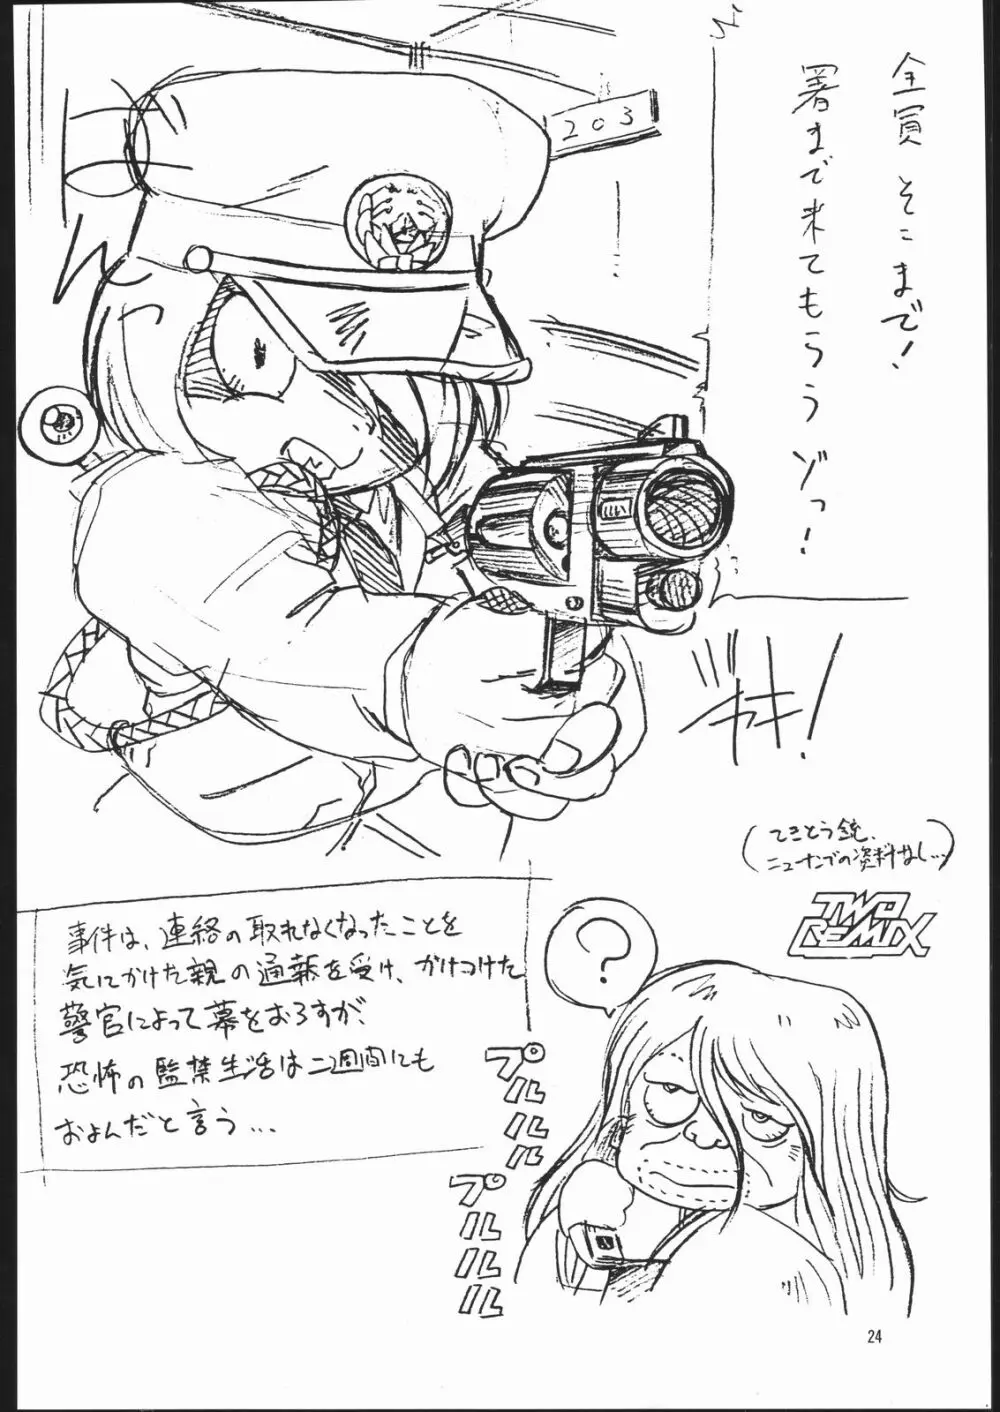 全員 そこまで！
署まで来てもらうゾっ！
203
ジャキ！
(てきとう銃、
ニューナンブの資料なし…)
TWO
REMIX
事件は、連絡の取れなくなったことを
気にかけた親の通報を受け、かけつけた
警官によって幕をおろすが、
恐怖の監禁生活は二週間にも
およんだと言う…
?
プルルル
プルルル
24